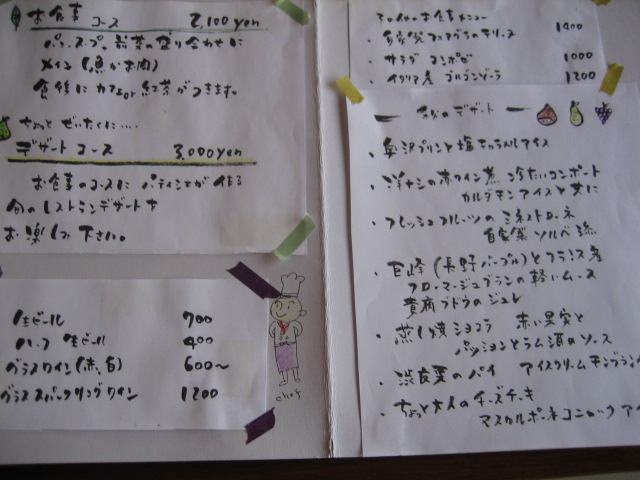 お食事コース 2,100yen
パン、スープ、前菜の盛り合わせに
メイン(魚かお肉)
食後にカフェor紅茶がつきます。
ちょっとぜいたくに....
デザートコース 3,000yen
お食事のコースに パティシエが作る
旬のレストランデザートを
お楽しみ下さい。
生ビール 700
ハーフ生ビール 400
グラスワイン(赤、白) 600〜
グラススパークリングワイン 1200
chef
その他のお食事メニュー
自家製フォアグラのテリーヌ 1400
サラダ コンポゼ 1000
イタリア産 ゴルゴンゾーラ 1200
秋のデザート
・贅沢プリンと塩キャラメルアイス
・洋ナシの赤ワイン煮 冷たいコンポート
カルダモンアイスと共に
・フレッシュフルーツのミネストローネ
自家製ソルベ添
・巨峰(長野パープル)とフランス産
フロマージュブランの軽いムース
貴腐ブドウのジュレ
・蒸し焼ショコラ 赤い果実と
パッションとラム酒のソース
・渋皮栗のパイ アイスクリームモンブラン
・ちょっと大人のチーズケーキ
マスカルポーネ コニャック ア